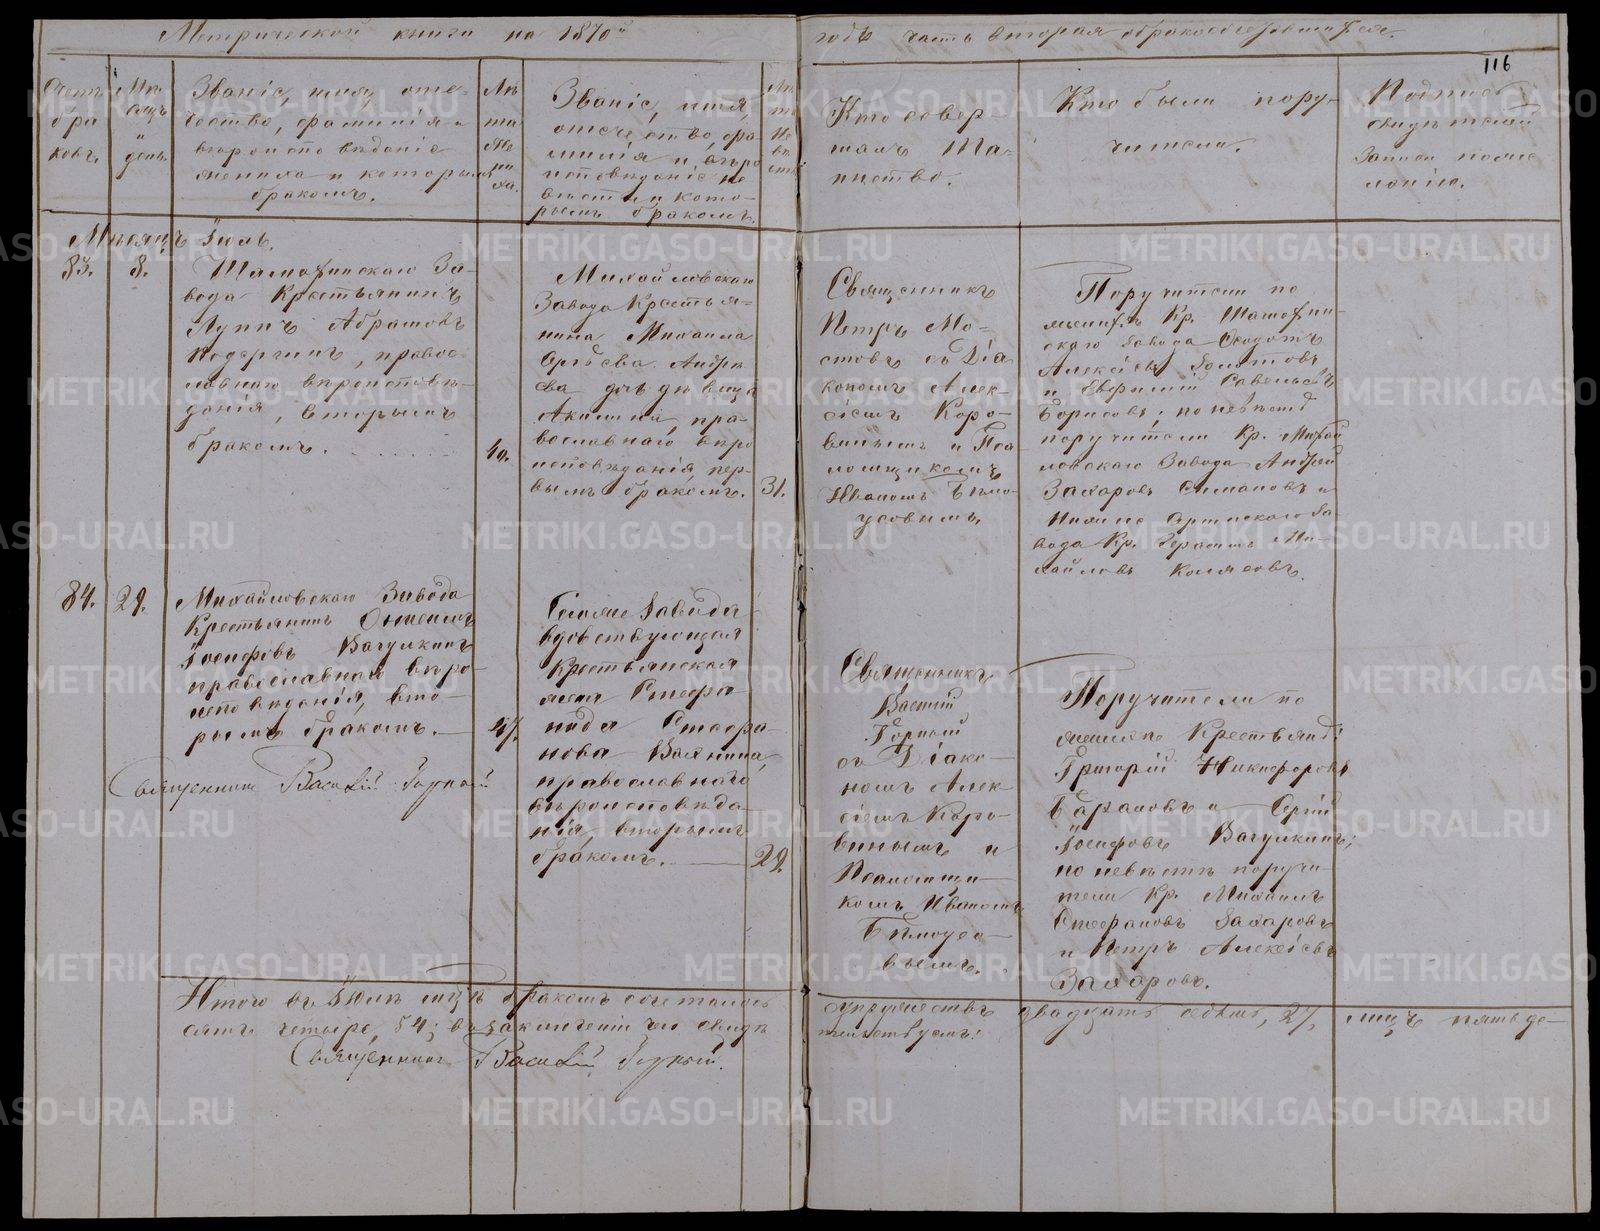 Метрической книги на 1870й годъ часть вторая о бракосочетавшихся.
116
Счетъ
бра
ковъ.
Мѣ
сяцъ
и
день.
Званіе, имя, отче-
чество, фамилія и
вѣроисповѣданіе
жениха и которымъ
бракомъ.
Лѣ
та
же
ни
ха.
Званіе, имя,
отчество, фа
милія и вѣро
исповѣданіе не
вѣсты и кото-
рымъ бракомъ.
Лѣ
та
не
вѣ
сты
Кто совер
шалъ Та-
инство.
Кто были пору-
чители.
Подпись
свидѣтелей
записи по же
ланію.
Мѣсяцъ Іюль.
83. 8.
Шамахинскаго За-
вода Крестьянинъ
Луппъ Абрамовъ
православ
наго вѣроисповѣ-
данія, вторымъ
бракомъ.
40.
Михайловскаго
Завода Крестья-
нина Михаила
Андре
ева дочь дѣвица
Акилина, пра-
вославнаго вѣро
исповѣданія, пер-
вымъ бракомъ.
31.
Священникъ
Петръ Мо-
стовъ съ Діа
кономъ Алек-
сіемъ Коро-
винымъ и Пса
ломщикомъ
Иваномъ Бѣло-
усовымъ.
Поручители по
женихѣ Кр. Шамахин-
скаго Завода Ѳедотъ
Алексіевъ
и Евфимій Савельевъ
Борисовъ; по невѣстѣ
поручители Кр. Михай
ловскаго Завода Андрей
Захаровъ Симановъ и
Артинскаго За
вода Кр. Герасимъ Ми-
хайловъ
84. 29.
Михайловскаго Завода
Крестьянинъ
Іосифовъ Вагулкинъ
православнаго вѣро-
исповѣданія, вто-
рымъ бракомъ.
47.
Священникъ Василій Горный
Того же Завода
вдовствующая
Крестьянская
жена Стефа-
нида Стефа
нова
православнаго
вѣроисповѣда-
нія, вторымъ
бракомъ.
29.
Священникъ
Василій
Горный
съ Діако-
номъ Алек-
сіемъ Коро-
винымъ и
Псаломщи-
комъ Иваномъ
Бѣлоусо-
вымъ.
Поручители по
женихѣ Крестьяне:
Григорій Никифоровъ
Барановъ и Сергій
Іосифовъ Вагулкинъ;
по невѣстѣ поручи-
тели Кр. Михаилъ
Стефановъ Захаровъ
и Петръ Алексіевъ
Захаровъ.
Итого въ Іюлѣ мцѣ бракомъ сочеталось супружествъ двадцать семь, 27, лицъ пятьде-
сятъ четыре, 54; въ заключеніи чего свидѣтельствуемъ:
Священникъ Василій Горный.
METRIKI.GASO-URAL.RU